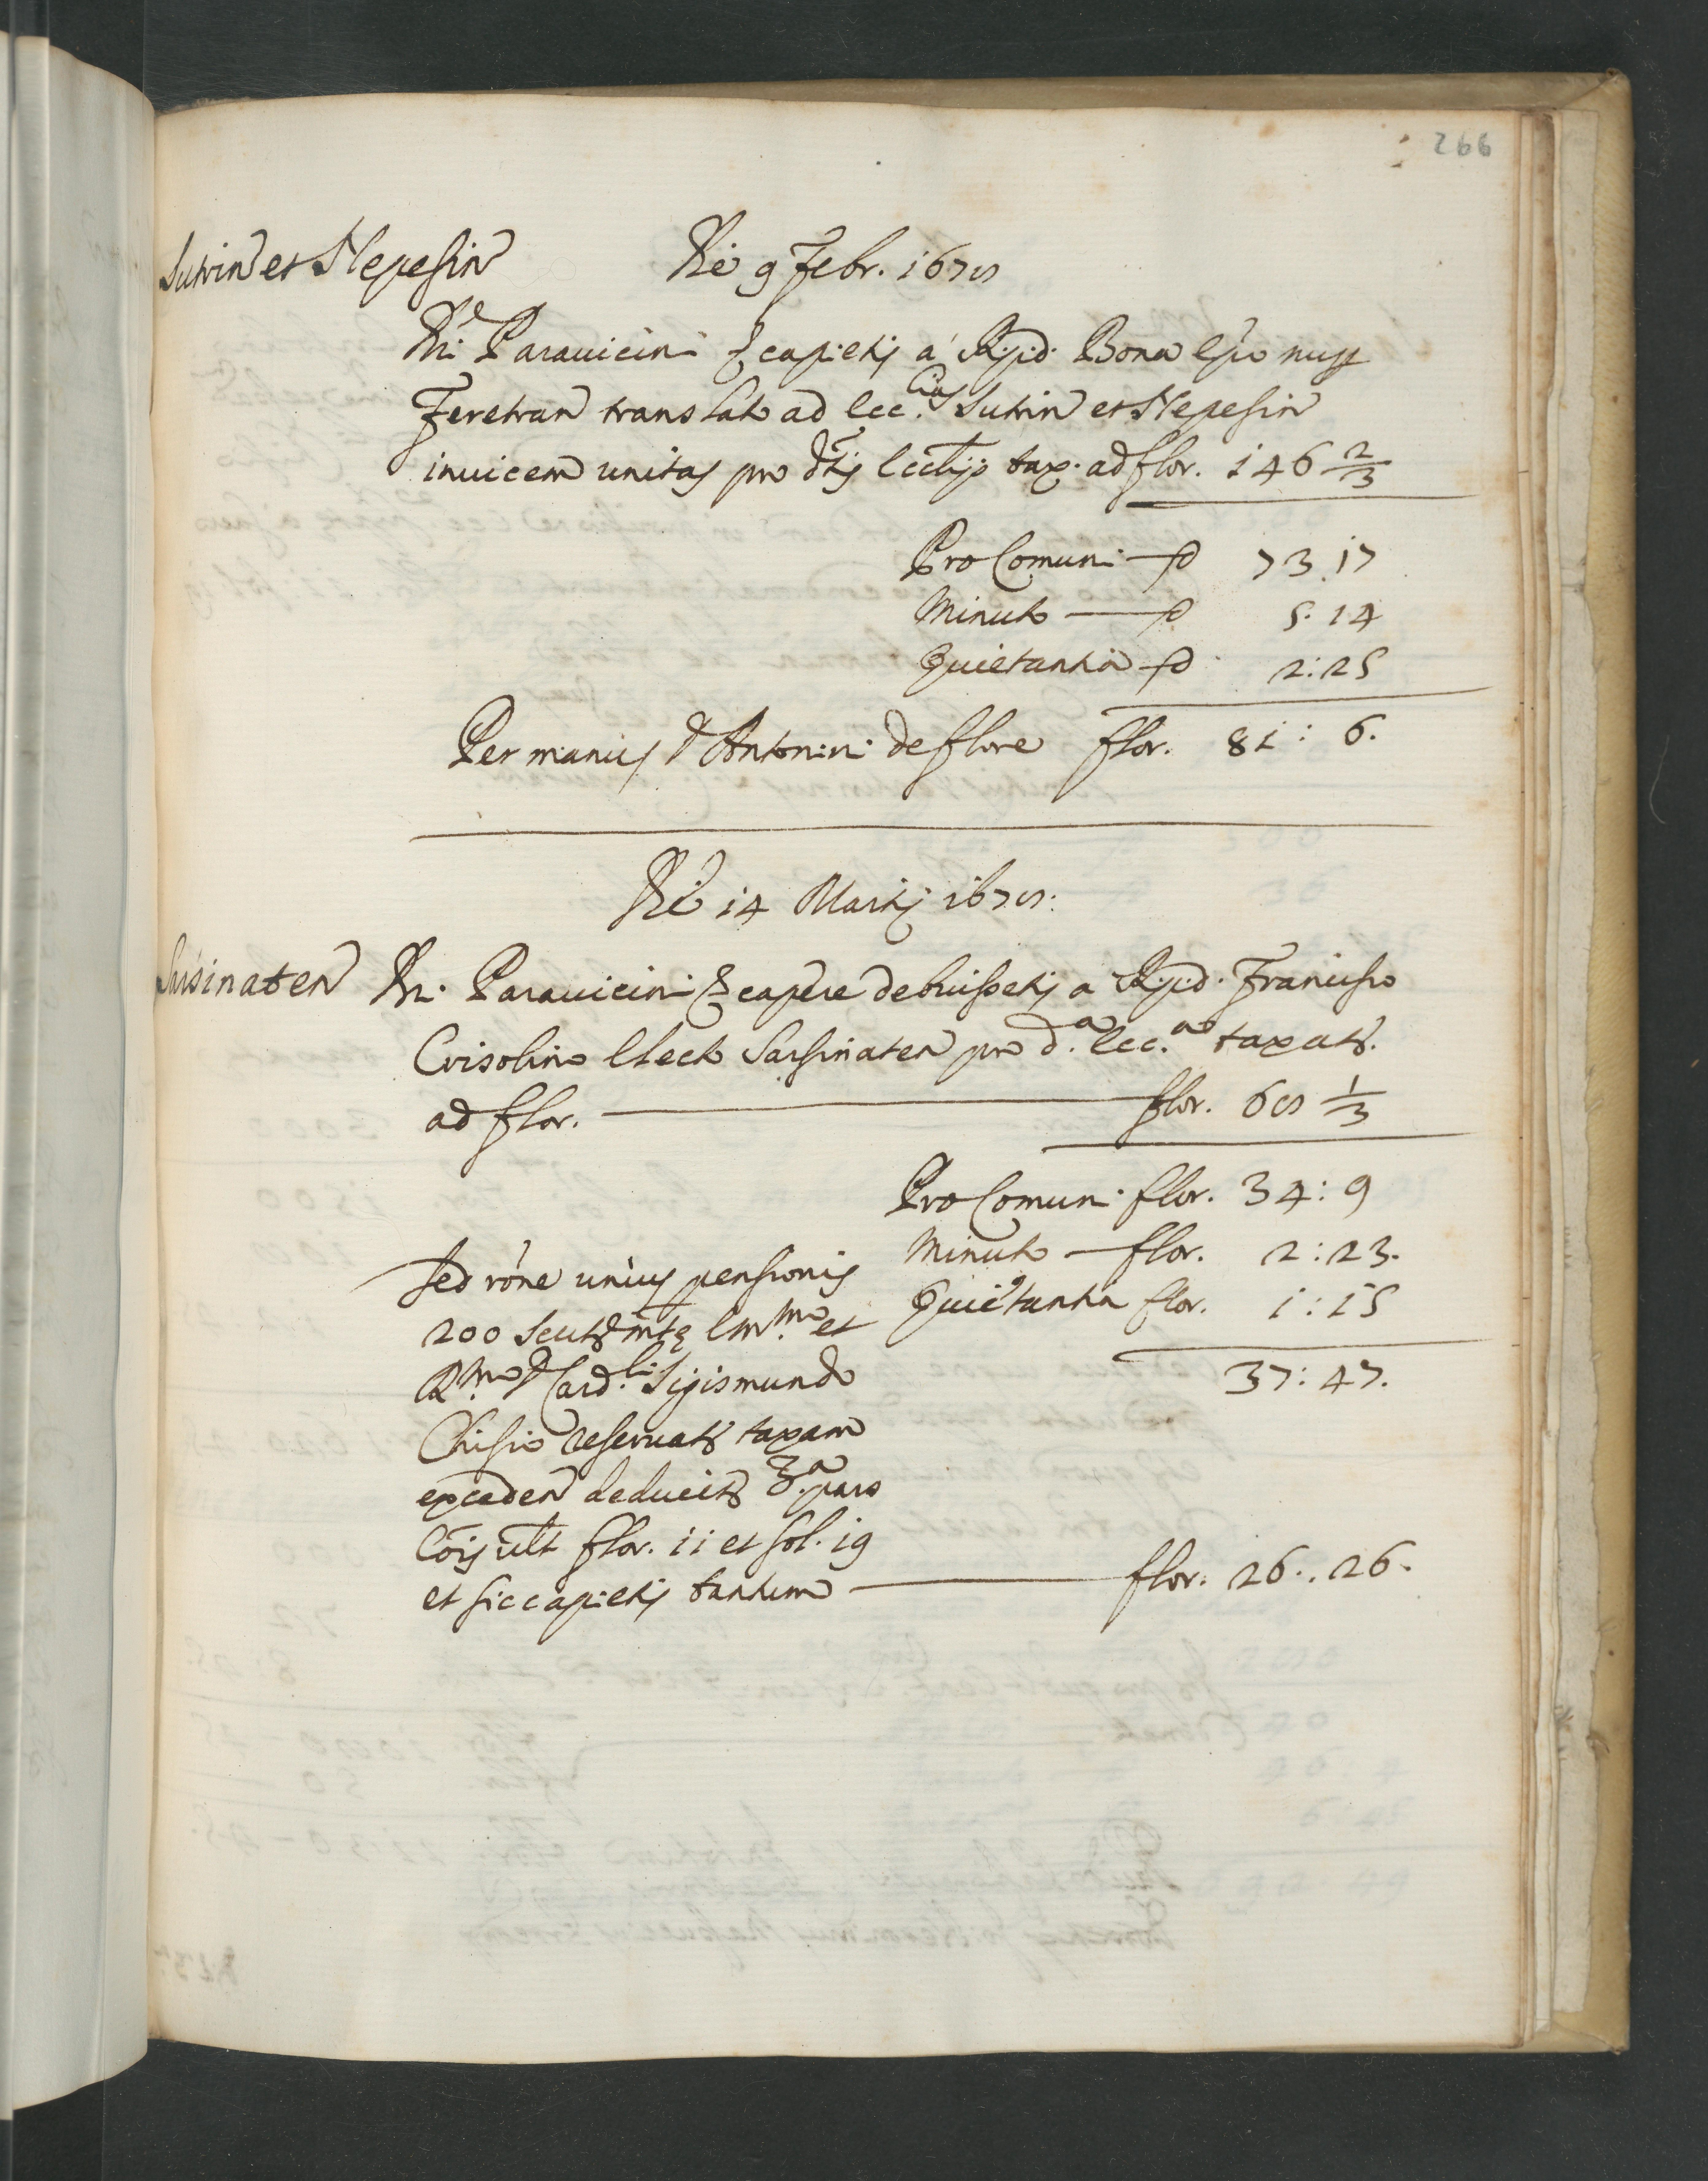 266
Sutrin et Nepesin Die 9 Febr. 1678
DD. Parauicini & capietis a R.p.d. Bona Epo nuper
Feretran translato ad Ecc.cias Sutrin et Nepesin
inuicem unitas pro dtis Ecctijs tax. ad flor. 146 2/3
Pro Comuni fl 73.17
Minuto fl 5.14
Quietantia fl 2:25
Per manus D Antonini de flore flor. 81: 6.
Die 14 Martij 1678.
Sarsinaten DD. Parauicini & capere debuissetis a R.p.d. Francisco
Crisolino Electo Sarsinaten pro d.a Ecc.a taxata
ad flor. flor. 68 1/3
Pro Comuni flor. 34:9
Minuto flor. 2:23.
Quietantia flor. 1:15
37:47.
Sed rone unius pensionis
200 scut mte Em.mo et
R.mo D Card.li Sigismundo
Chisio reseruata taxam
exceden deducitr 3.a pars
Cois ult flor. 11 et sol. 19
et sic capietis tantum flor. 26..26.